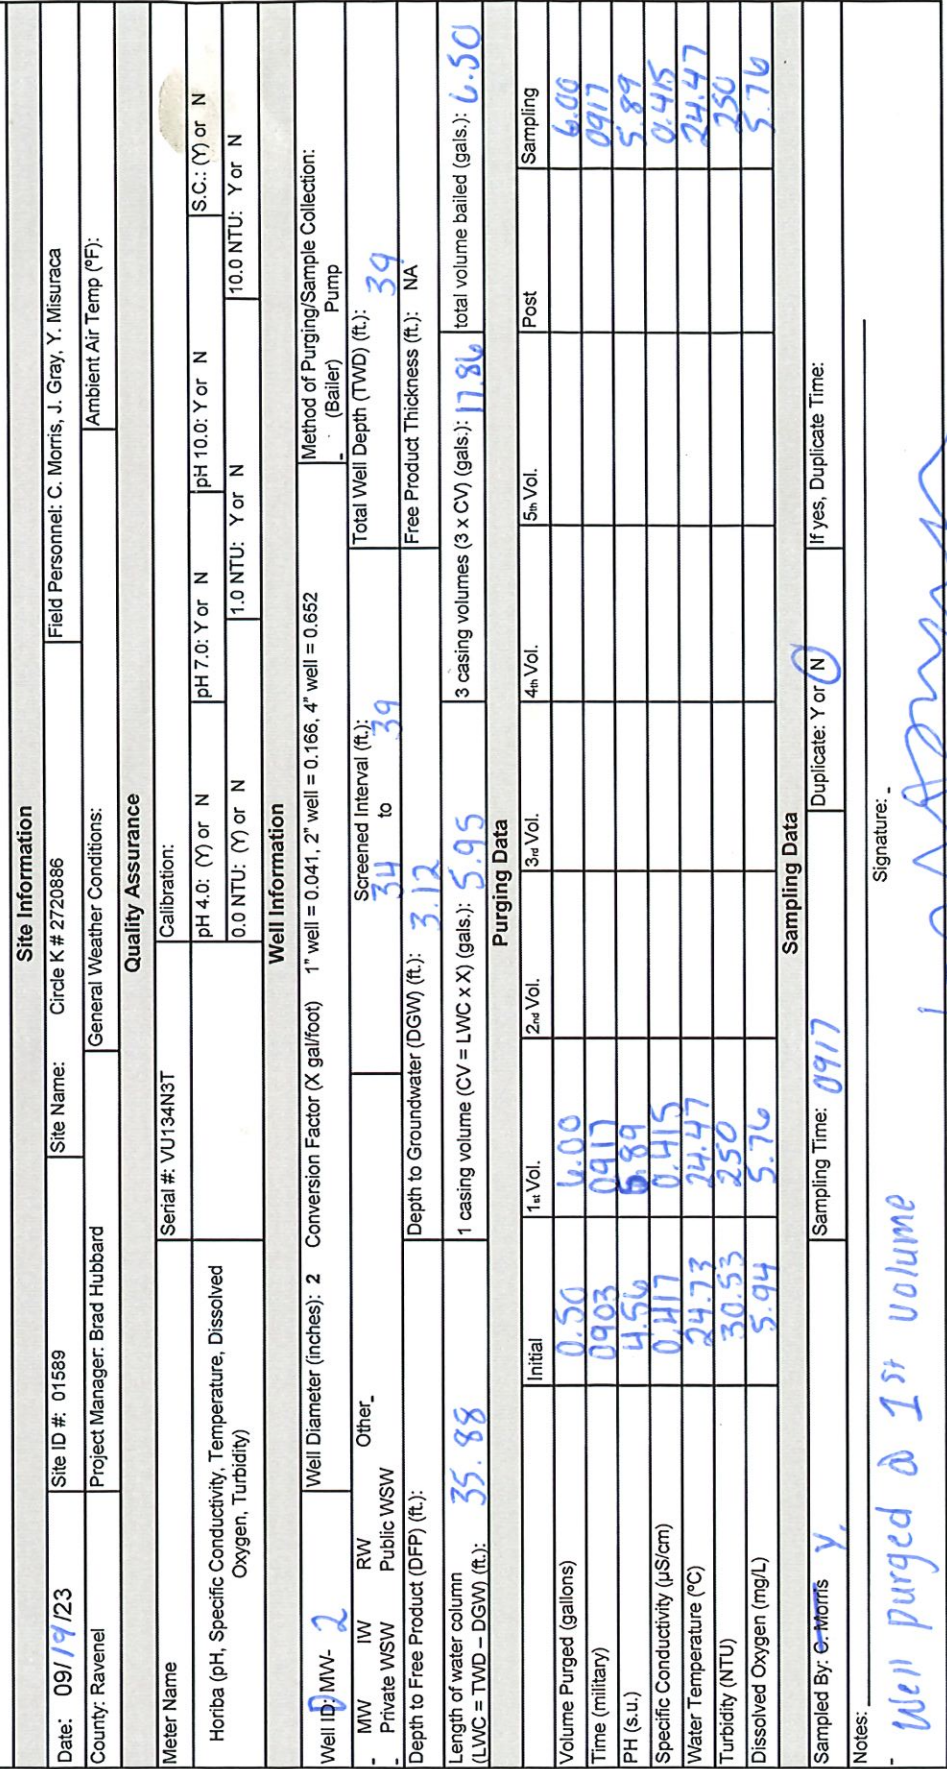 Site Information
Date: 09/19/23 Site ID #: 01589 Site Name: Circle K # 2720886 Field Personnel: C. Morris, J. Gray, Y. Misuraca
County: Ravenel Project Manager: Brad Hubbard General Weather Conditions: Ambient Air Temp (°F):
Quality Assurance
Meter Name Serial #: VU134N3T Calibration:
Horiba (pH, Specific Conductivity, Temperature, Dissolved
Oxygen, Turbidity)
pH 4.0: (Y) or N pH 7.0: Y or N pH 10.0: Y or N S.C.: (Y) or N
0.0 NTU: (Y) or N 1.0 NTU: Y or N 10.0 NTU: Y or N
Well Information
Well ID: DMW- 2 Well Diameter (inches): 2 Conversion Factor (X gal/foot) 1" well = 0.041, 2" well = 0.166, 4" well = 0.652 Method of Purging/Sample Collection:
- (Bailer) Pump
- MW IW RW Other_
- Private WSW Public WSW
Screened Interval (ft.):
34 to 39
Total Well Depth (TWD) (ft.): 39
Depth to Free Product (DFP) (ft.): Depth to Groundwater (DGW) (ft.): 3.12 Free Product Thickness (ft.): NA
Length of water column
(LWC = TWD – DGW) (ft.): 35.88 1 casing volume (CV = LWC x X) (gals.): 5.95 3 casing volumes (3 x CV) (gals.): 17.86 total volume bailed (gals.): 6.50
Purging Data
Initial 1st Vol. 2nd Vol. 3rd Vol. 4th Vol. 5th Vol. Post Sampling
Volume Purged (gallons) 0.50 6.00 6.00
Time (military) 0903 0917 0917
PH (s.u.) 4.56 5.89 5.89
Specific Conductivity (µS/cm) 0.417 0.415 0.415
Water Temperature (°C) 24.73 24.47 24.47
Turbidity (NTU) 30.53 250 250
Dissolved Oxygen (mg/L) 5.94 5.76 5.76
Sampling Data
Sampled By: C. Morris Y. Sampling Time: 0917 Duplicate: Y or N If yes, Duplicate Time:
Notes:
- Well purged @ 1st volume
Signature: _